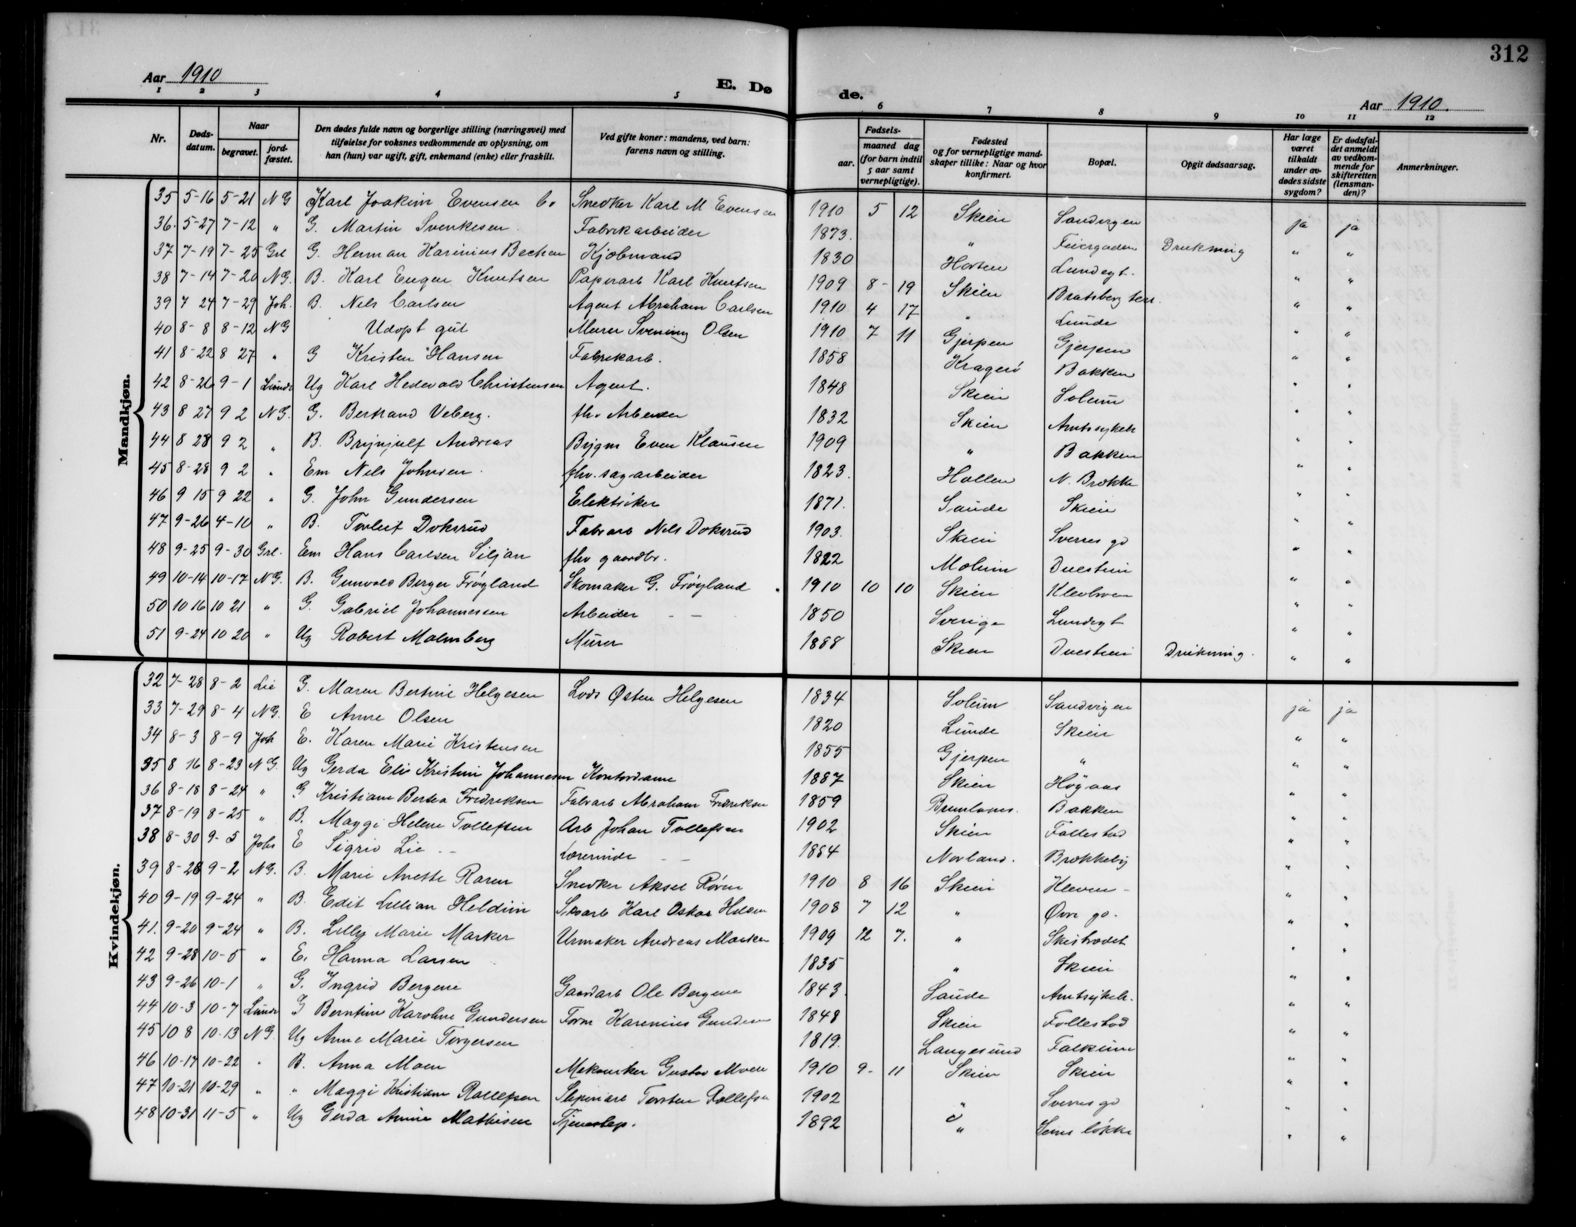 312
Aar 1910
E. Dø de.
Aar 1910.
1 2 3 4 5 6 7 8 9 10 11 12
Nr. Døds-datum. Naar begravet. jord-fæstet. Den dødes fulde navn og borgerlige stilling (næringsvei) med tilføielse for voksnes vedkommende av oplysning, om han (hun) var ugift, gift, enkemand (enke) eller fraskilt. Ved gifte koner: mandens, ved barn: farens navn og stilling. Fødsels- aar. maaned dag (for barn indtil 5 aar samt vernepligtige). Fødested og for vernepligtige mandskaper tillike: Naar og hvor konfirmert. Bopæl. Opgit dødsaarsag. Har læge været tilkaldt under avdødes sidste sygdom? Er dødsfaldet anmeldt av vedkommende for skifteretten (lensmanden)? Anmerkninger.
Mandkjøn.
35 5-16 5-21 NG Karl Joakim Evensen Snedker Karl M Evensen 1910 5 12 Skien Sandvigen ja ja
36. 5-27 7-12 " G. Martin Svenkesen. Fabrikarbeider 1873. " Feiergaden Drukning " "
37 7-19 7-25 Grl G. Herman Karinius Becken Kjøbmand 1830 Horten Lundegt. " "
38 7-14 7-20 NG. B. Karl Eugen Knutsen Papirarb Karl Knutsen 1909 8- 19 Skien Bratsberg terr. " "
39 7 24 7-29 Joh. B. Nils Carlsen Agent Abraham Carlsen 1910 4 17 " Lunde " "
40 8-8 8-12 NG Udøpt gut Murer Svening Olsen 1910 7 11 Gjerpen Gjerpen " "
41 8-22 8 27 " G Kristen Hansen Fabrikarb. 1858 Kragerø Bakken " "
42 8-26 9-1 Lunde Ug Karl Hedevald Christensen Agent. 1848 Skien Solum " "
43 8 27 9 2 NG. G. Bertrand Veberg. fhv Arbeider 1832 Skien Amtssykeh " "
44 8 28 9 2 " B. Brynjulf Andreas Bygm Even Klausen 1909 " Bakken " "
45 8-28 9 2 " Em Nils Johnsen. fhv. sagarbeider 1823. Hollen N. Brække " "
46 9 15 9 22 " G. John Gundersen Elektriker 1871. Saude Skien " "
47 9-26 4-10 " B. Torleif Doksrud Fabrarb Nils Doksrud 1903. Skien Sverres gd " "
48 9-25 9-30 Grl. Em Hans Carlsen Siljan fhv gaardbr. 1822 Molum Duestien " "
49 10-14 10-17 NG. B. Gunvald Berger Frøyland Skomaker G. Frøyland 1910 10 10 Skien Kleohven " "
50 10 16 10 21 " G. Gabriel Johannessen Arbeider 1850 Sverige Lundegt " "
51 9-24 10 20 " Ug Robert Malmberg Murer 1888 Skien Duestien Drukning. " "
Kvindekjøn.
32 7-28 8-2 Lie G. Maren Bertine Helgesen Lods Østen Helgesen 1834 Solum Sandvigen ja ja
33 7-29 8-4 NG. E Anne Olsen 1820 Lunde Skien " "
34 8-3 8-9 Joh E. Karen Marie Kristensen 1855 Gjerpen " " "
35 8 16 8-23 NG. Ug Gerda Eli Kristine Johannesen Kontordame 1887 Skien Høgaas " "
36 8-18 8-24 " G Kristiane Bertea Fredriksen Fabrarb Abraham Fredriksen 1859 Brunlanes. Bakken " "
37 8-19 8-25 " B. Maggi Helene Tollefsen Arb Johan Tollefsen 1902 Skien Follestad " "
38 8-30 9-5 Johs E Sigrid Lie Lærerinde 1884 Norland. Brækkeby " "
39 8-28 9-2 NG. B. Marie Anette Røren Snedker Aksel Røren 1910 8 16 Skien Kleven- " "
40 9-19 9-24 " B. Edit Lillian Heldim Slesarb Karl Oskar 1908 7 12 " Øvre gd. " "
41. 9-20 9-24 " B. Lilly Marie Marker Urmaker Andreas Marker 1909 12 7. " Skistredet " "
42 9-28 10-5 " E. Hanna Larsen 1835 " Skien " "
43 9-26 10-1 " G. Ingrid Bergene Gaardarb Ole Bergene 1843. Saude Amtsykeh. " "
44 10-3 10-7 Lunde G Berntine Karoline Gundersen Form Karenius Gundersen 1848 Skien Follestad " "
45 10 8 10-13 NG Ug Anne Marie Torgersen 1819. Langesund Falkum " "
46 10-17 10-22 " B. Anna Moen Gustav Moen 1910 9- 11 Skien Skien " "
47 10-21 10-29 " " Maggi Kristiane Rollefsen Torsten Rollefsen 1902 " Sverres gd " "
48 10-31 11-5 " Ug Gerda Amine Mathisen Tjenestep. 1892 " løkke " "